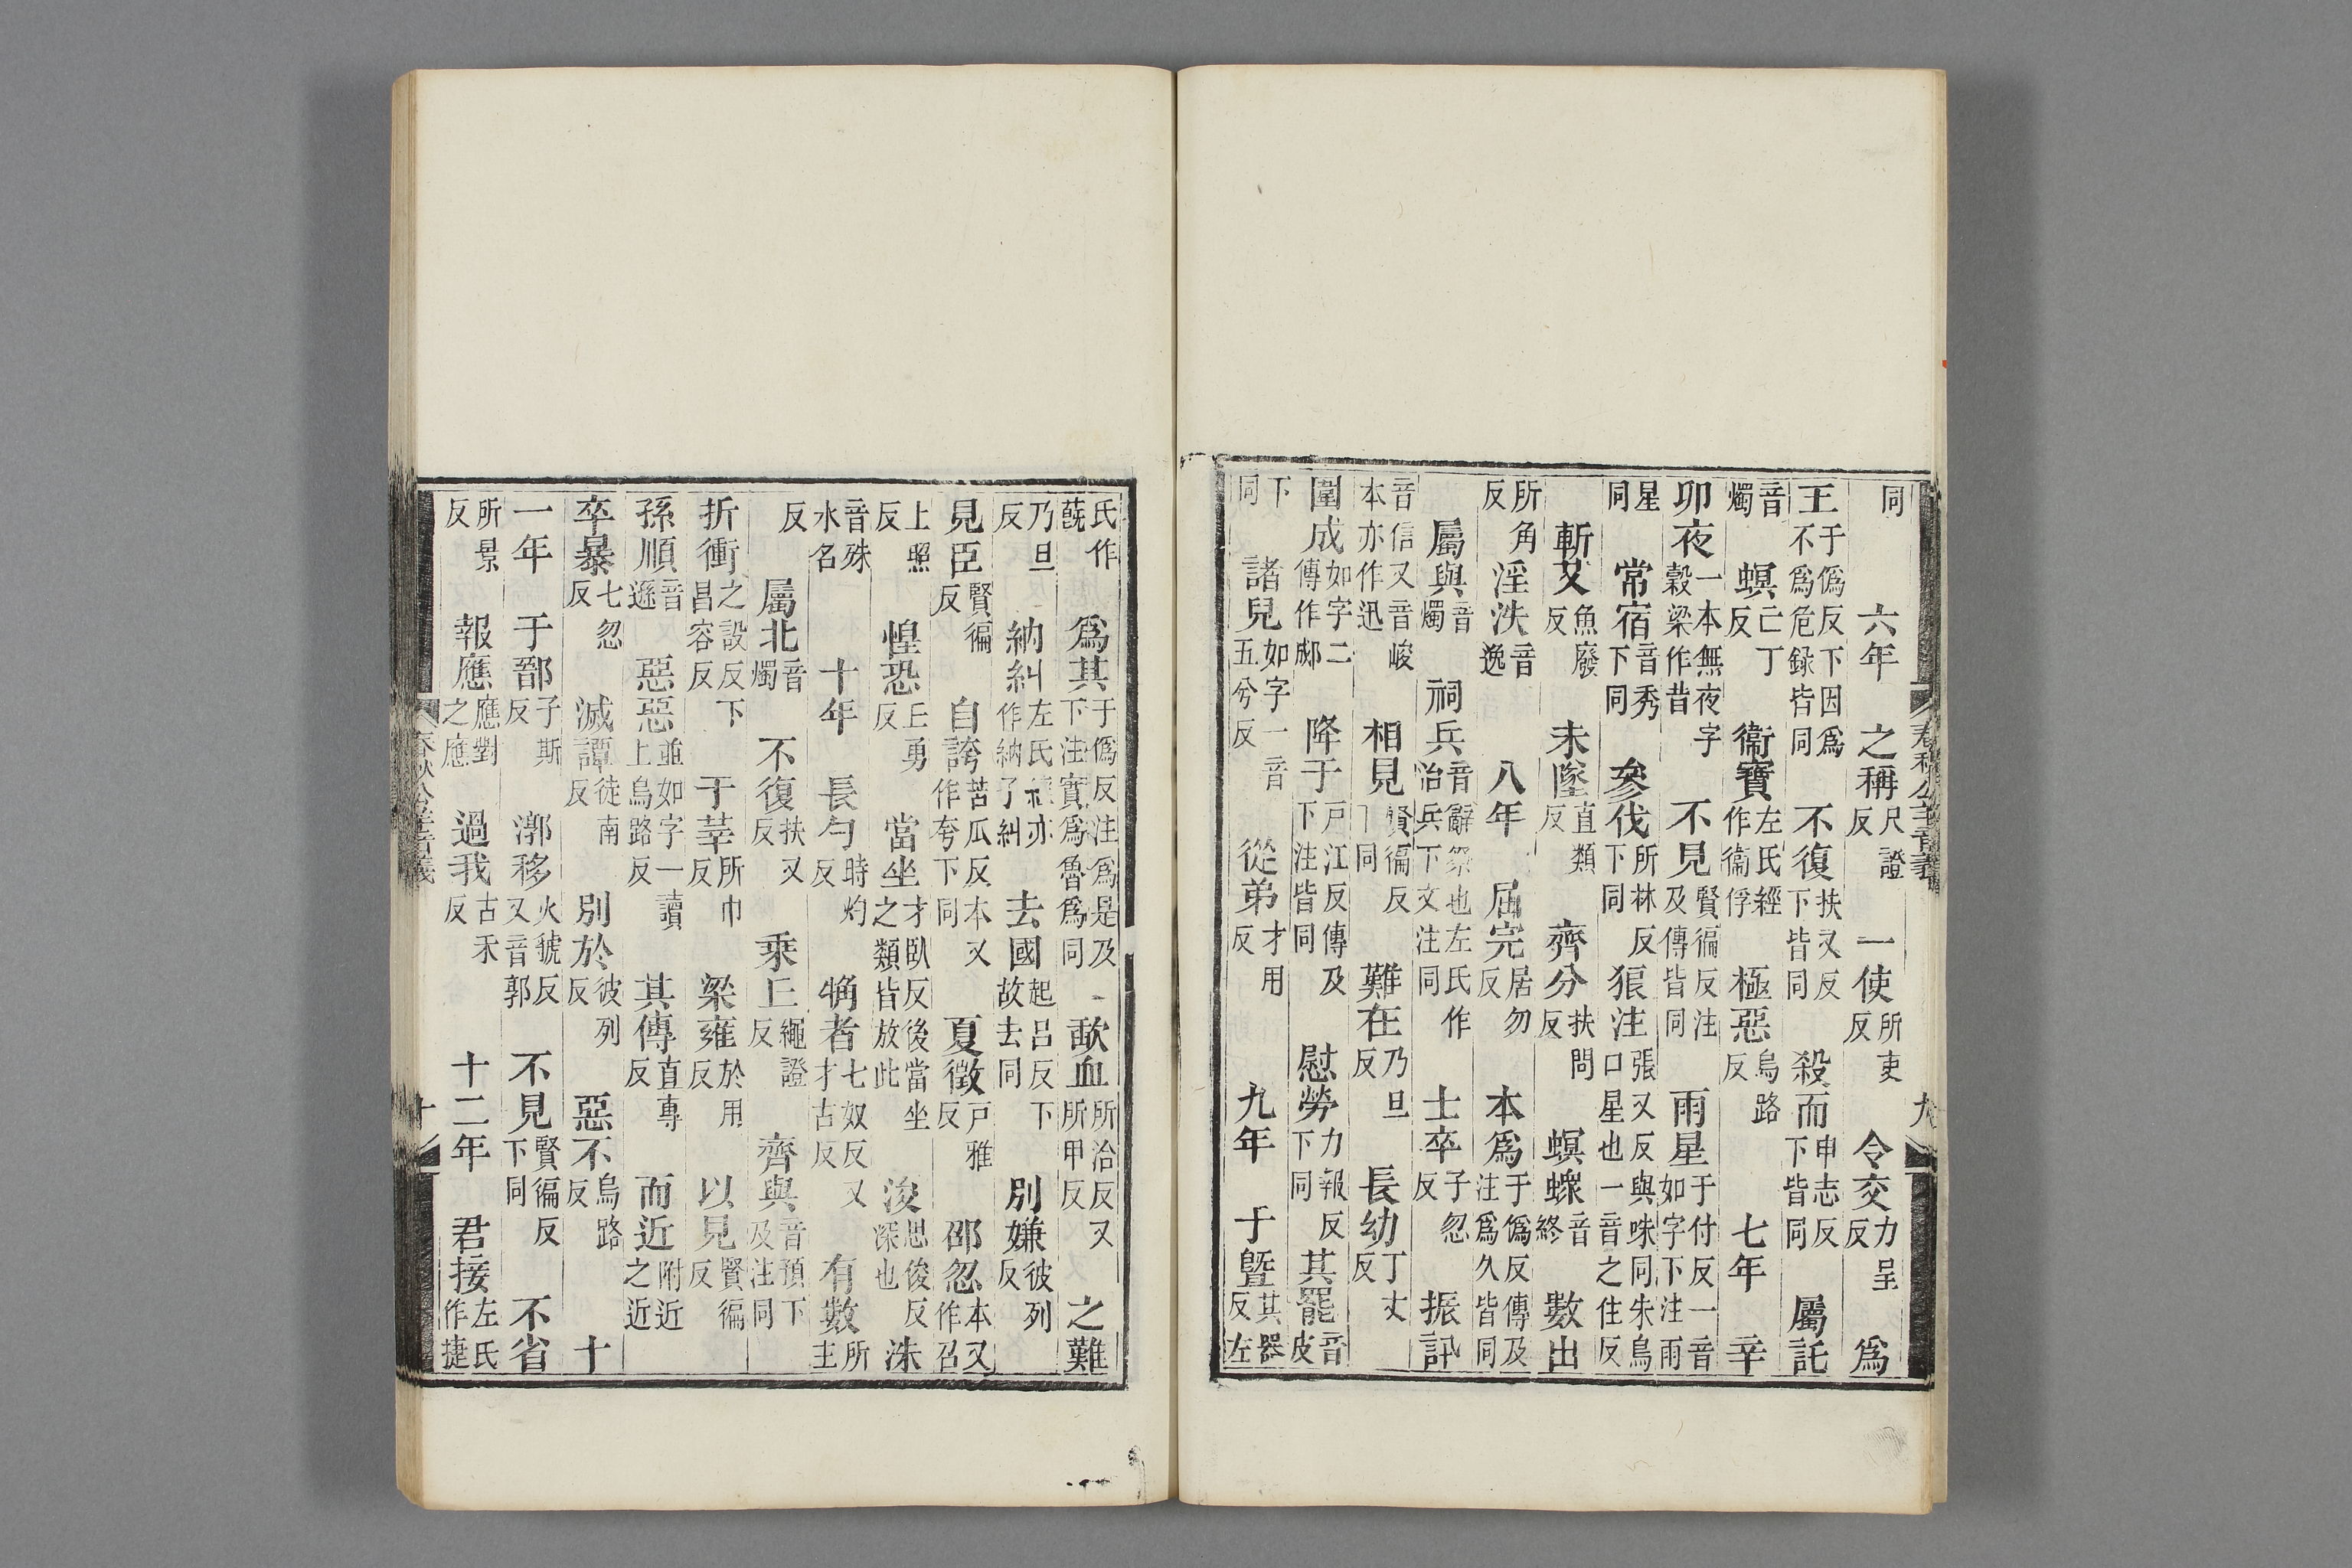 同 六年 之稱尺證反 一使所吏反 令交力呈反 爲
王于僞反下因爲不爲危録皆同 不復扶又反下皆同 殺而申志反下皆同 屬託
音燭 螟亡丁反 衞寶左氏經作衞俘 極惡烏路反 七年 辛
卯夜一本無夜字穀梁作昔 不見賢徧反注及傳皆同 雨星于付反一音如字下注雨
星同 常宿音秀下同 參伐所林反下同 狼注張又反與咮同朱鳥口星也一音之住反
斬艾魚廢反 未墜直類反 齊分扶問反 螟螽音終 數出
所角反 淫泆音逸 八年 屈完居勿反 本爲于僞反傳及注爲久皆同
屬與音燭 祠兵音辭祭也左氏作治兵下文注同 士卒子忽反 振訊
音信又音峻本亦作迅 相見賢徧反下同 難在乃旦反 長幼丁丈反
圍成如字二傳作郕 降于戶江反傳及下注皆同 慰勞力報反下同 其罷音皮
下同 諸兒如字一音五兮反 從弟才用反 九年 于曁其器反左
春秋公羊音義 九
氏作蔇 爲其于僞反注爲是及下注實爲魯爲同 歃血所洽反又所甲反 之難
乃旦反 納糾左氏經亦作納子糾 去國起呂反下故去同 別嫌彼列反
見臣賢徧反 自誇苦瓜反本又作夸下同 夏徵戶雅反 邵忽本又作召
上照反 惶恐丘勇反 當坐才臥反後當坐之類皆放此 浚思俊反深也 洙
音殊水名 十年 長勺時灼反 觕者七奴反又才古反 有數所主
反 屬北音燭 不復扶又反 乘上繩證反 齊與音預下及注同
折衝之設反下昌容反 于莘所巾反 梁雍於用反 以見賢徧反
孫順音遜 惡惡並如字一讀上烏路反 其傳直專反 而近附近之近
卒暴七忽反 滅譚徒南反 別於彼列反 惡不烏路反 十
一年 于鄑子斯反 漷移火虢反又音郭 不見賢徧反下同 不省
所景反 報應應對之應 過我古禾反 十二年 君接左氏作捷
春秋公羊音義 十